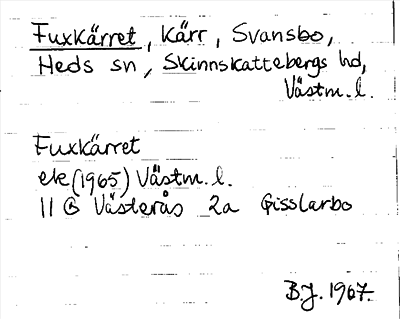 Fuxkärret, Kärr, Svansbo,
Heds sn, Skinnskattebergs hd,
Västm. l.
Fuxkärret
ek (1965) Västm. l.
11 G Västerås 2a Gisslarbo
B.J. 1967.